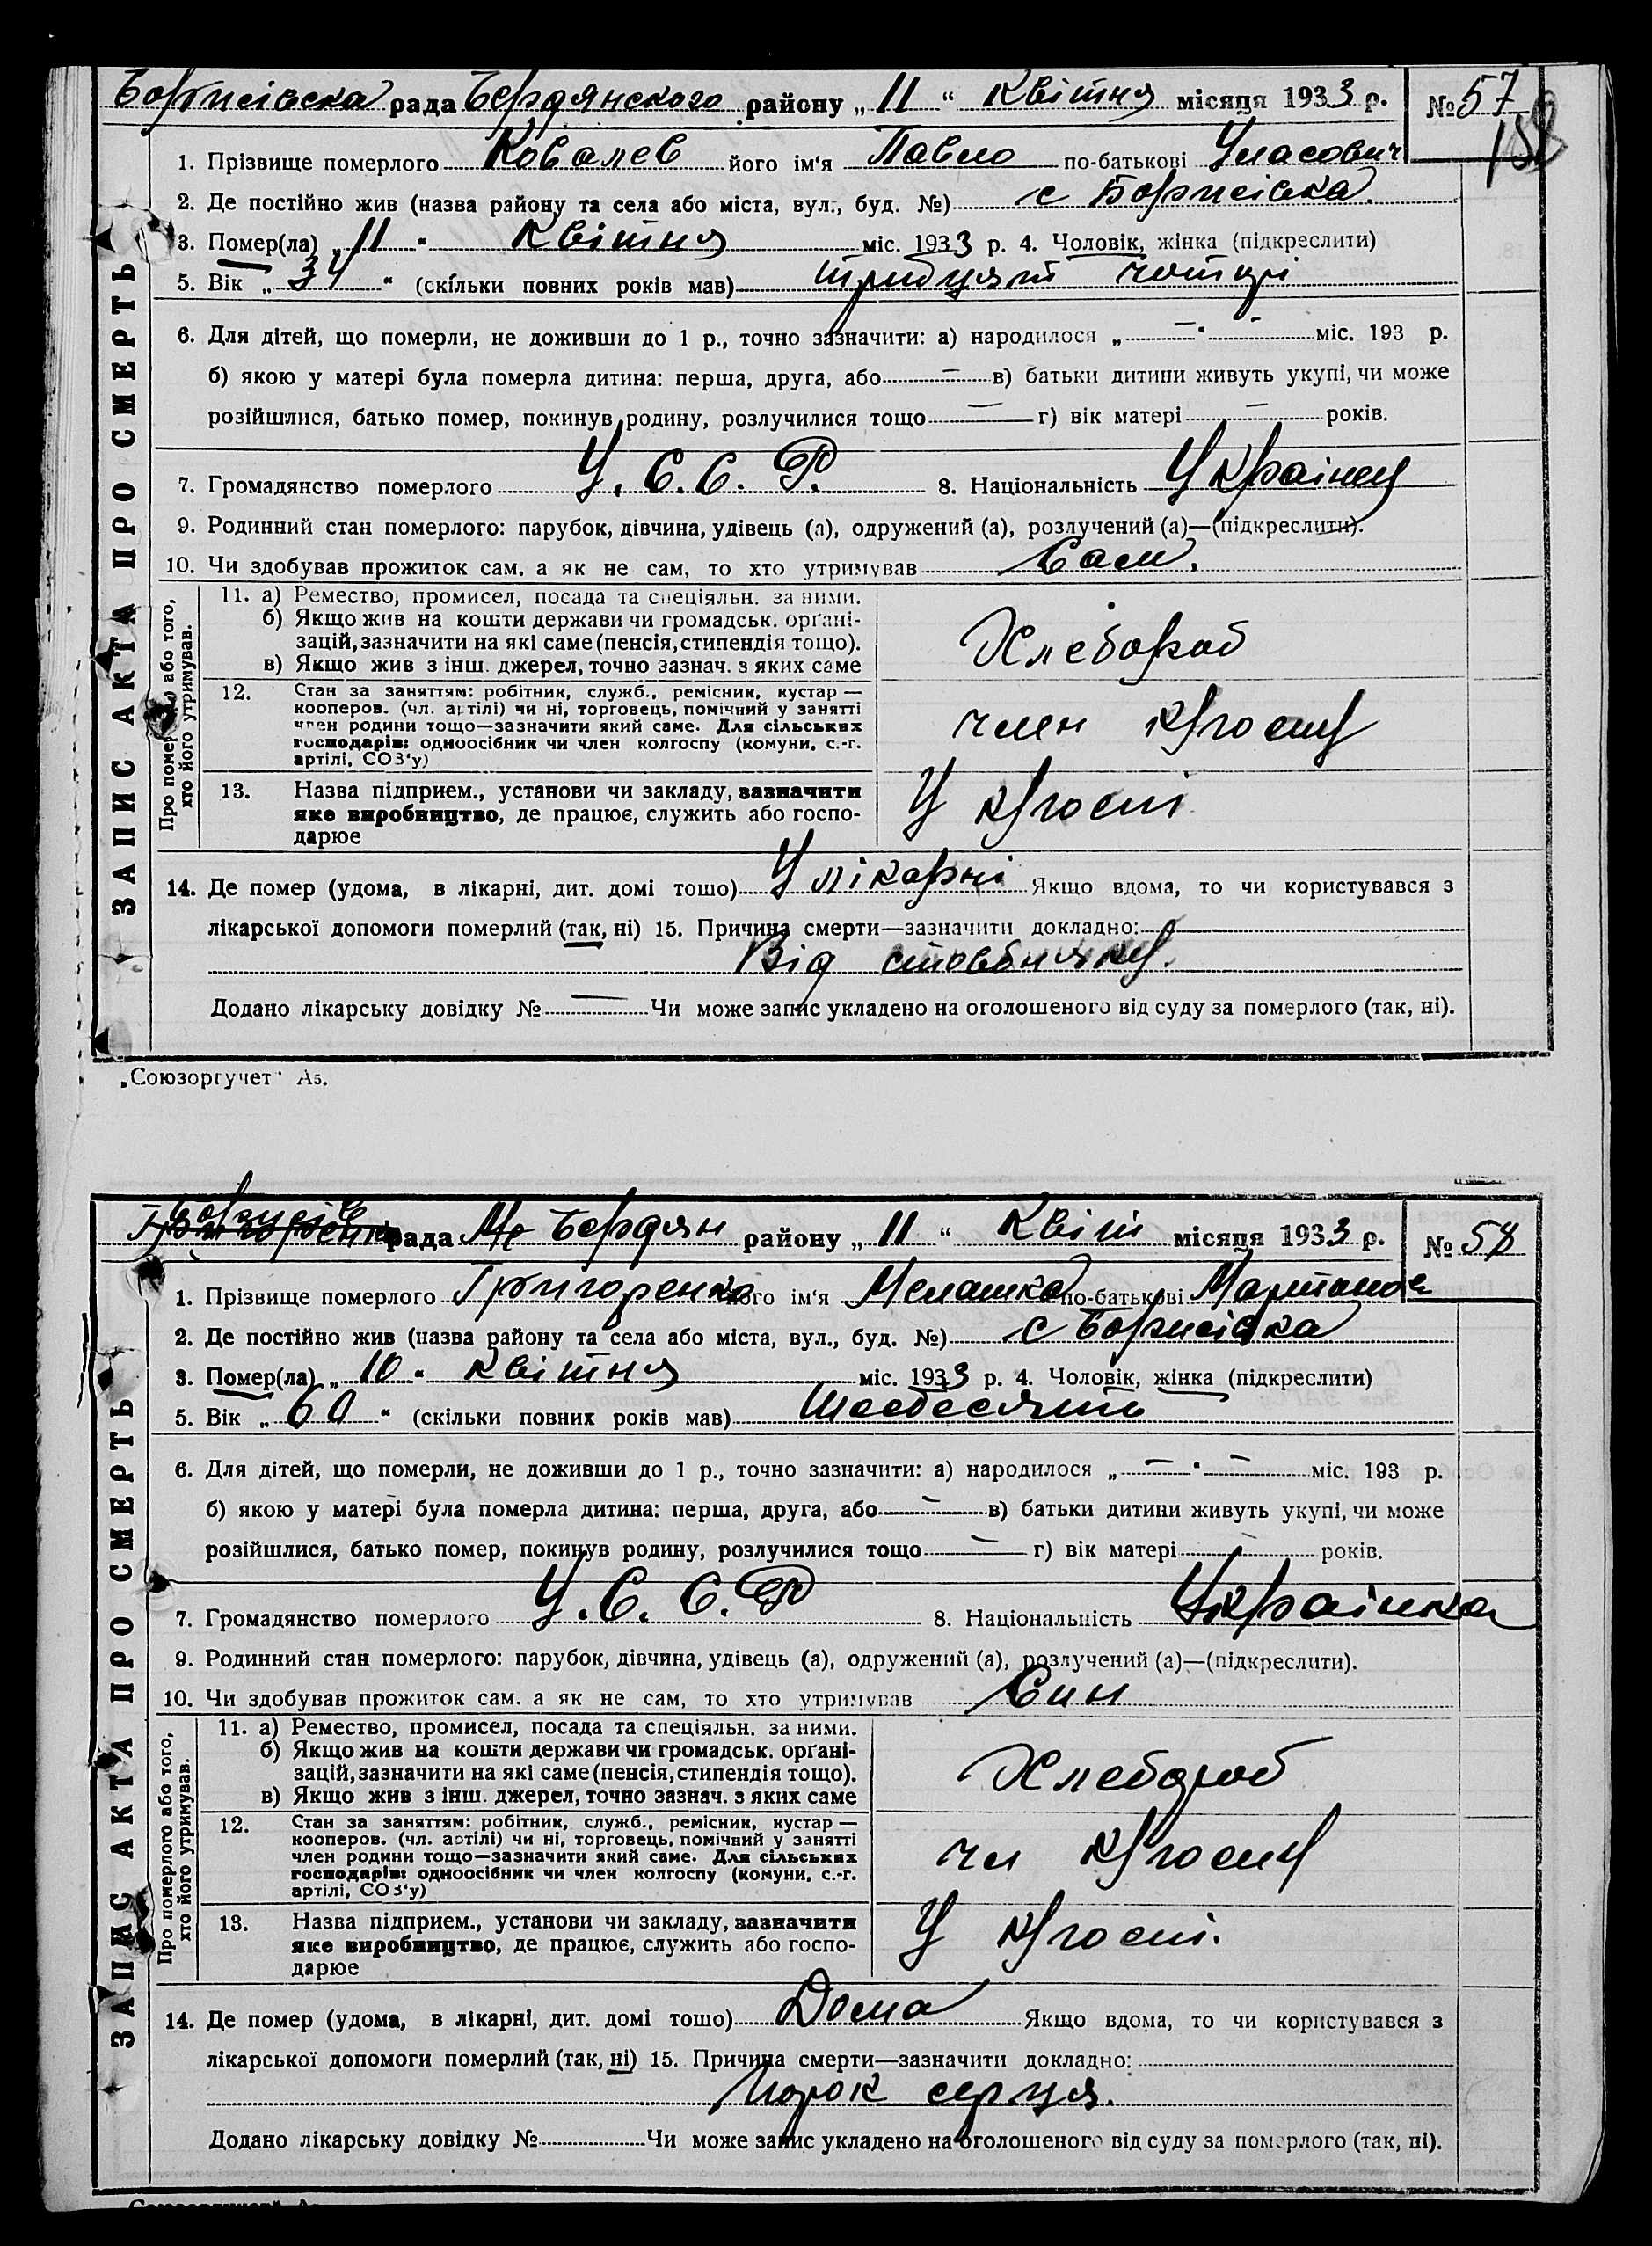 Борисівска рада Бердянского району „ 11 “ Квітня місяця 1933 р. № 57
158
1. Прізвище померлого Ковалев його ім‘я Павло по-батькові Уласович
2. Де постійно жив (назва району та села або міста, вул., буд. №) с Борисівка.
3. Помер(ла) „ 11 “ Квітня міс. 1933 р. 4. Чоловік, жінка (підкреслити)
5. Вік „ 34 “ (скільки повних років мав) тридцят чотирі
6. Для дітей, що померли, не доживши до 1 р., точно зазначити: а) народилося „ — “ — міс. 193 р.
б) якою у матері була померла дитина: перша, друга, або — в) батьки дитини живуть укупі, чи може
розійшлися, батько помер, покинув родину, розлучилися тощо — г) вік матері — років.
7. Громадянство померлого У. С. С. Р. 8. Національність Українец
9. Родинний стан померлого: парубок, дівчина, удівець (а), одружений (а), розлучений (а)—(підкреслити).
10. Чи здобував прожиток сам, а як не сам, то хто утримував Сам.
ЗАПИС АКТА ПРО СМЕРТЬ
Про померлого або того, хто його утримував.
11. а) Ремество, промисел, посада та спеціяльн. за ними.
б) Якщо жив на кошти держави чи громадськ. орґані-
зацій, зазначити на які саме (пенсія, стипендія тощо).
в) Якщо жив з інш. джерел, точно зазнач. з яких саме
Хлебороб
12. Стан за заняттям: робітник, служб., ремісник, кустар —
кооперов. (чл. артілі) чи ні, торговець, помічний у занятті
член родини тощо—зазначити який саме. Для сільських
господарів: одноосібник чи член колгоспу (комуни, с.-г.
артілі, СОЗ‘у)
член к/госпу
13. Назва підприєм., установи чи закладу, зазначити
яке виробництво, де працює, служить або госпо-
дарюе
У к/госпі
14. Де помер (удома, в лікарні, дит. домі тощо) У лікарні Якщо вдома, то чи користувався з
лікарської допомоги померлий (так, ні) 15. Причина смерти—зазначити докладно:
Від стовбняку.
Додано лікарську довідку № — Чи може запис укладено на оголошеного від суду за померлого (так, ні).
„Союзоргучет“ А5.
Борисів рада Бердян району „ 11 “ Квіт місяця 1933 р. № 58
1. Прізвище померлого Григоренко його ім‘я Мелашка по-батькові
2. Де постійно жив (назва району та села або міста, вул., буд. №) с Борисівка
3. Помер(ла) „ 10 “ квітня міс. 1933 р. 4. Чоловік, жінка (підкреслити)
5. Вік „ 60 “ (скільки повних років мав) Шесдесять
6. Для дітей, що померли, не доживши до 1 р., точно зазначити: а) народилося „ — “ — міс. 193 р.
б) якою у матері була померла дитина: перша, друга, або — в) батьки дитини живуть укупі, чи може
розійшлися, батько помер, покинув родину, розлучилися тощо — г) вік матері — років.
7. Громадянство померлого У. С. С. Р 8. Національність Українка
9. Родинний стан померлого: парубок, дівчина, удівець (а), одружений (а), розлучений (а)—(підкреслити).
10. Чи здобував прожиток сам, а як не сам, то хто утримував Син
ЗАПИС АКТА ПРО СМЕРТЬ
Про померлого або того, хто його утримував.
11. а) Ремество, промисел, посада та спеціяльн. за ними.
б) Якщо жив на кошти держави чи громадськ. орґані-
зацій, зазначити на які саме (пенсія, стипендія тощо).
в) Якщо жив з інш. джерел, точно зазнач. з яких саме
Хлебороб
12. Стан за заняттям: робітник, служб., ремісник, кустар —
кооперов. (чл. артілі) чи ні, торговець, помічний у занятті
член родини тощо—зазначити який саме. Для сільських
господарів: одноосібник чи член колгоспу (комуни, с.-г.
артілі, СОЗ‘у)
чл к/госпу
13. Назва підприєм., установи чи закладу, зазначити
яке виробництво, де працює, служить або госпо-
дарюе
У к/госпі.
14. Де помер (удома, в лікарні, дит. домі тощо) Дома Якщо вдома, то чи користувався з
лікарської допомоги померлий (так, ні) 15. Причина смерти—зазначити докладно:
Порок серця.
Додано лікарську довідку № Чи може запис укладено на оголошеного від суду за померлого (так, ні).